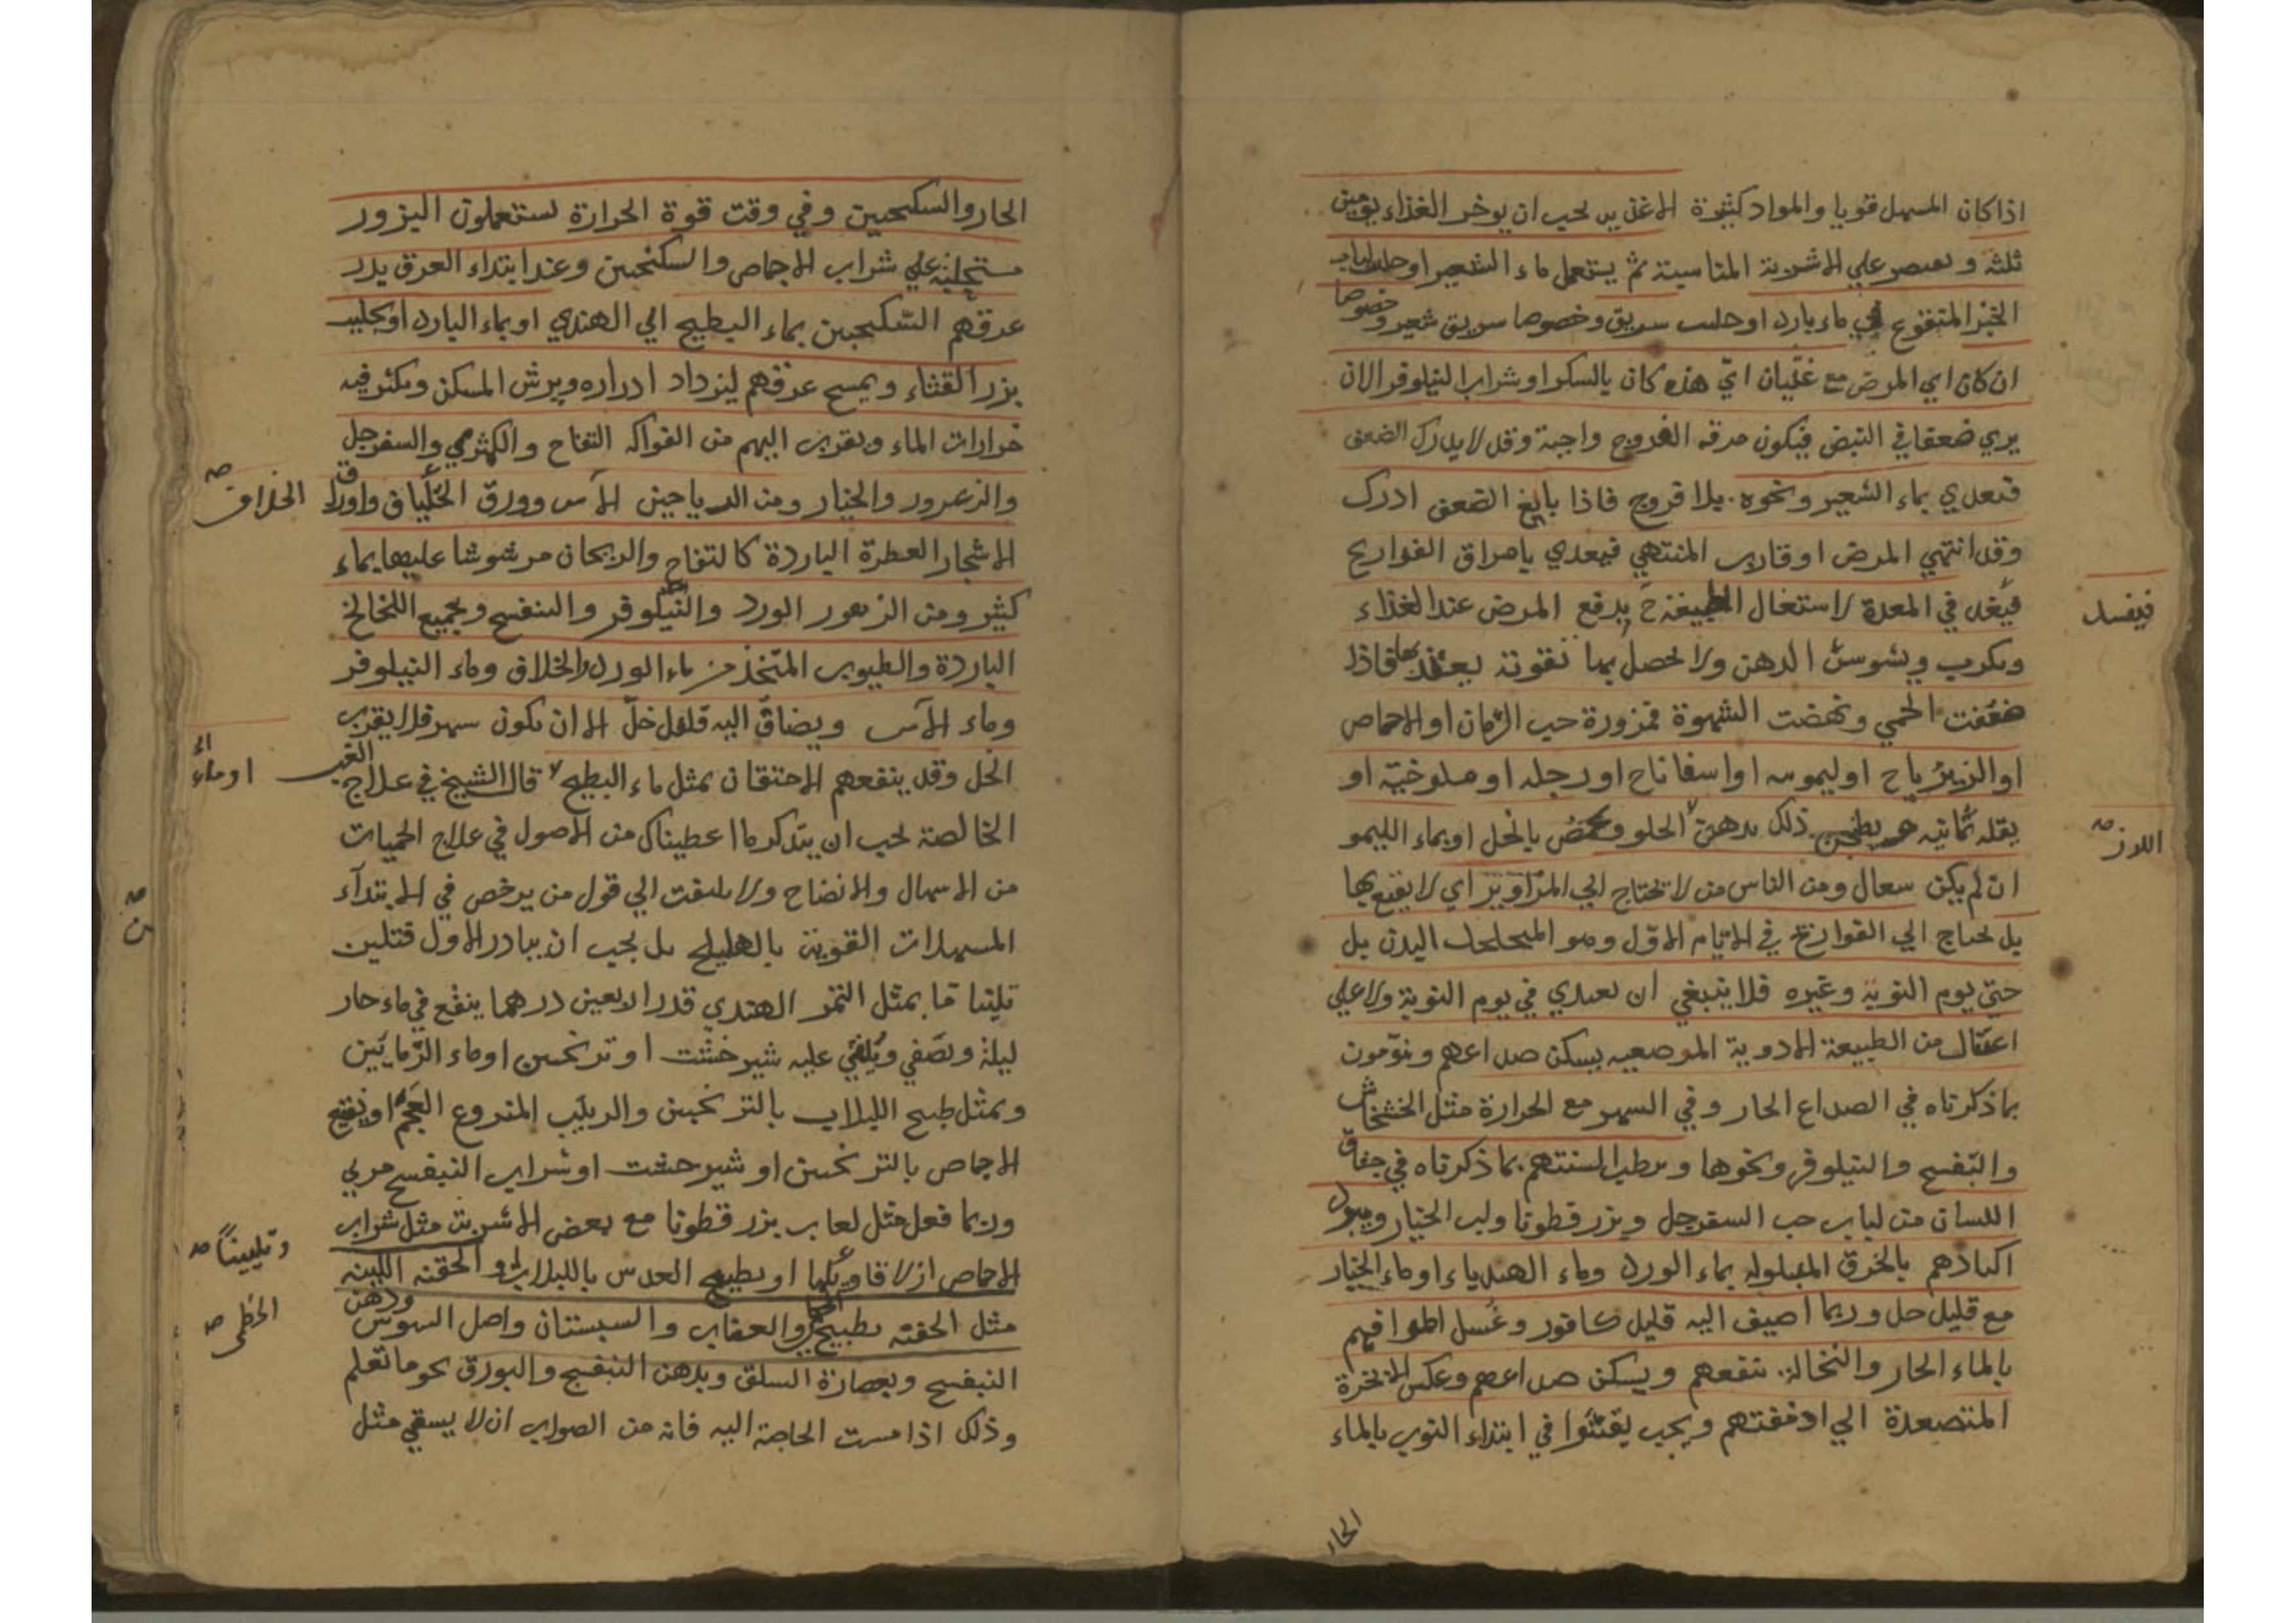 اذا كان المسهل قويا والمواد كثيرة الاغذية يجب ان يوخر الغذاء يومين
ثلثة ويقتصر علي الاشربة المناسبة ثم يستعمل ماء الشعير او
الخبز المنقوع في ماء بارد او حلب سويق وخصوصا سويق شعير وخصوصا
ان كان اي المرض مع غثيان اي هذه كان بالسكر او شراب النيلوفر الا ان
يري ضعفا في النبض فيكون مرقه الفروج واجبة وقد لا يدرك الضعف
فيغدي بماء الشعير ونحوه بلا فروج فاذا بالغ الضعف ادرك
وقد انتهي المرض او قارب المنتهي فيغدي بامراق الفواريج
فيفسد
في المعدة لاستغال الطبيعة ح بدفع المرض عند الغذاء
ويكرب ويشوش الذهن ولا يحصل بها تقوية يعتد بها فاذا
ضعفت الحمي ونهضت الشهوة فمزورة حب الرمان او الاجاص
او الزيرباج او ليمويه او اسفاناخ او رجله او ملوخية او
بقله يمانيه ذلك بدهن الحلو ويحمض بالخل او بماء الليمو
اللوز
ان لم يكن سعال ومن الناس من لا يحتاج الي المزاوير اي لا يقنع بها
بل يحتاج الي الفواريج في الايام الاول وهو المتخلخل البدن بل
حتي يوم النوبة وغيره فلا ينبغي ان يغدي في يوم النوبة ولا علي
اعتقال من الطبيعة الادوية الموضعيه يسكن صداعهم وينومون
بما ذكرناه في الصداع الحار وفي السهر مع الحرارة مثل الخشخاش
والبنفسج والنيلوفر ونحوها ويرطب السنتهم بما ذكرناه في جفاف
اللسان من لباب حب السفرجل وبزر قطونا ولب الخيار ويبرد
اكبادهم بالخرق المبلوله بماء الورد وماء الهندباء او ماء الخيار
مع قليل خل وربما اضيف اليه قليل كافور وغسل اطرافهم
بالماء الحار والنخالة ينفعهم ويسكن صداعهم وعكس الابخرة
المتصعدة الي ادمغتهم ويجب يقيئوا في ابتداء النوب بالماء
الحار
الحار والسكنجبين وفي وقت قوة الحرارة يستعملون البزور
مستحلبة علي شراب الاجاص والسكنجبين وعند ابتداء العرق يدر
عرقهم السكنجبين بماء البطيخ اي الهندي او بماء البارد او بحليب
بزر القثاء ويمسح عرقهم ليزداد ادراره ويرش المسكن ويكثر فيه
خرارات الماء ويقرب اليهم من الفواكه التفاح والكمثري والسفرجل
والزعرور والخيار ومن الرياحين الآس وورق واوراق الخلاف
الاشجار العطرة الباردة كالتفاح والريحان مرشوشا عليها بماء
كثير ومن الزهور الورد والنيلوفر والبنفسج وبجميع اللخالخ
الباردة والطيوب المتخذ من ماء الورد والخلاف وماء النيلوفر
وماء الآس ويضاف اليه قليل خل الا ان يكون سهر فلا يقرب
الخل وقد ينفعهم الاحتقان بمثل ماء البطيخ قال الشيخ في علاج الغب
او ماء
الخالصة يجب ان يتذكر ما اعطيناك من الاصول في علاج الحميات
من الاسهال والانضاج ولا يلتفت الي قول من يرخص في الابتداء
المسهلات القوية بالهليلج بل يجب ان يبادر الاول فتلين
تلينا ما بمثل التمر الهندي قدر اربعين درهما ينقع في ماء حار
ليلة ويصفي ويلقي عليه شيرخشت او ترنجبين او ماء الرمانين
وبمثل طبيخ اللبلاب بالترنجبين والزبيب المنزوع العجم او نقيع
الاجاص بالترنجبين او شيرخشت او شراب البنفسج مربي
وربما فعل مثل لعاب بزر قطونا مع بعض الاشربة مثل شراب
وتليينا
الاجاص ازلاقا او بطبيخ العدس باللبلاب والحقنه اللينه
مثل الحقنه بطبيخ والعناب والسبستان واصل السوس ودهن
الخطمي
البنفسج وبعصارة السلق وبدهن البنفسج والبورق نحو ما تعلم
وذلك اذا مست الحاجة اليه فانه من الصواب ان لا يسقي مثل